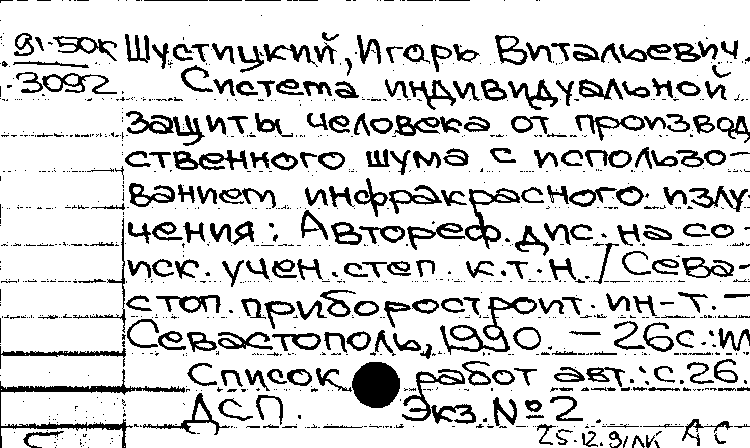 91-50к Шустицкий, Игорь Витальевич.
3092 Система индивидуальной
защиты человека от производ
ственного шума с использо-
ванием инфракрасного излу
чения: Автореф. дис. на со-
иск. учен. степ. к.т.н. / Сева-
стоп. приборостроит. ин-т. –
Севастополь, 1990. – 26с.: ил
Список работ авт.: с.26.
ДСП. Экз. №2.
25.12.91